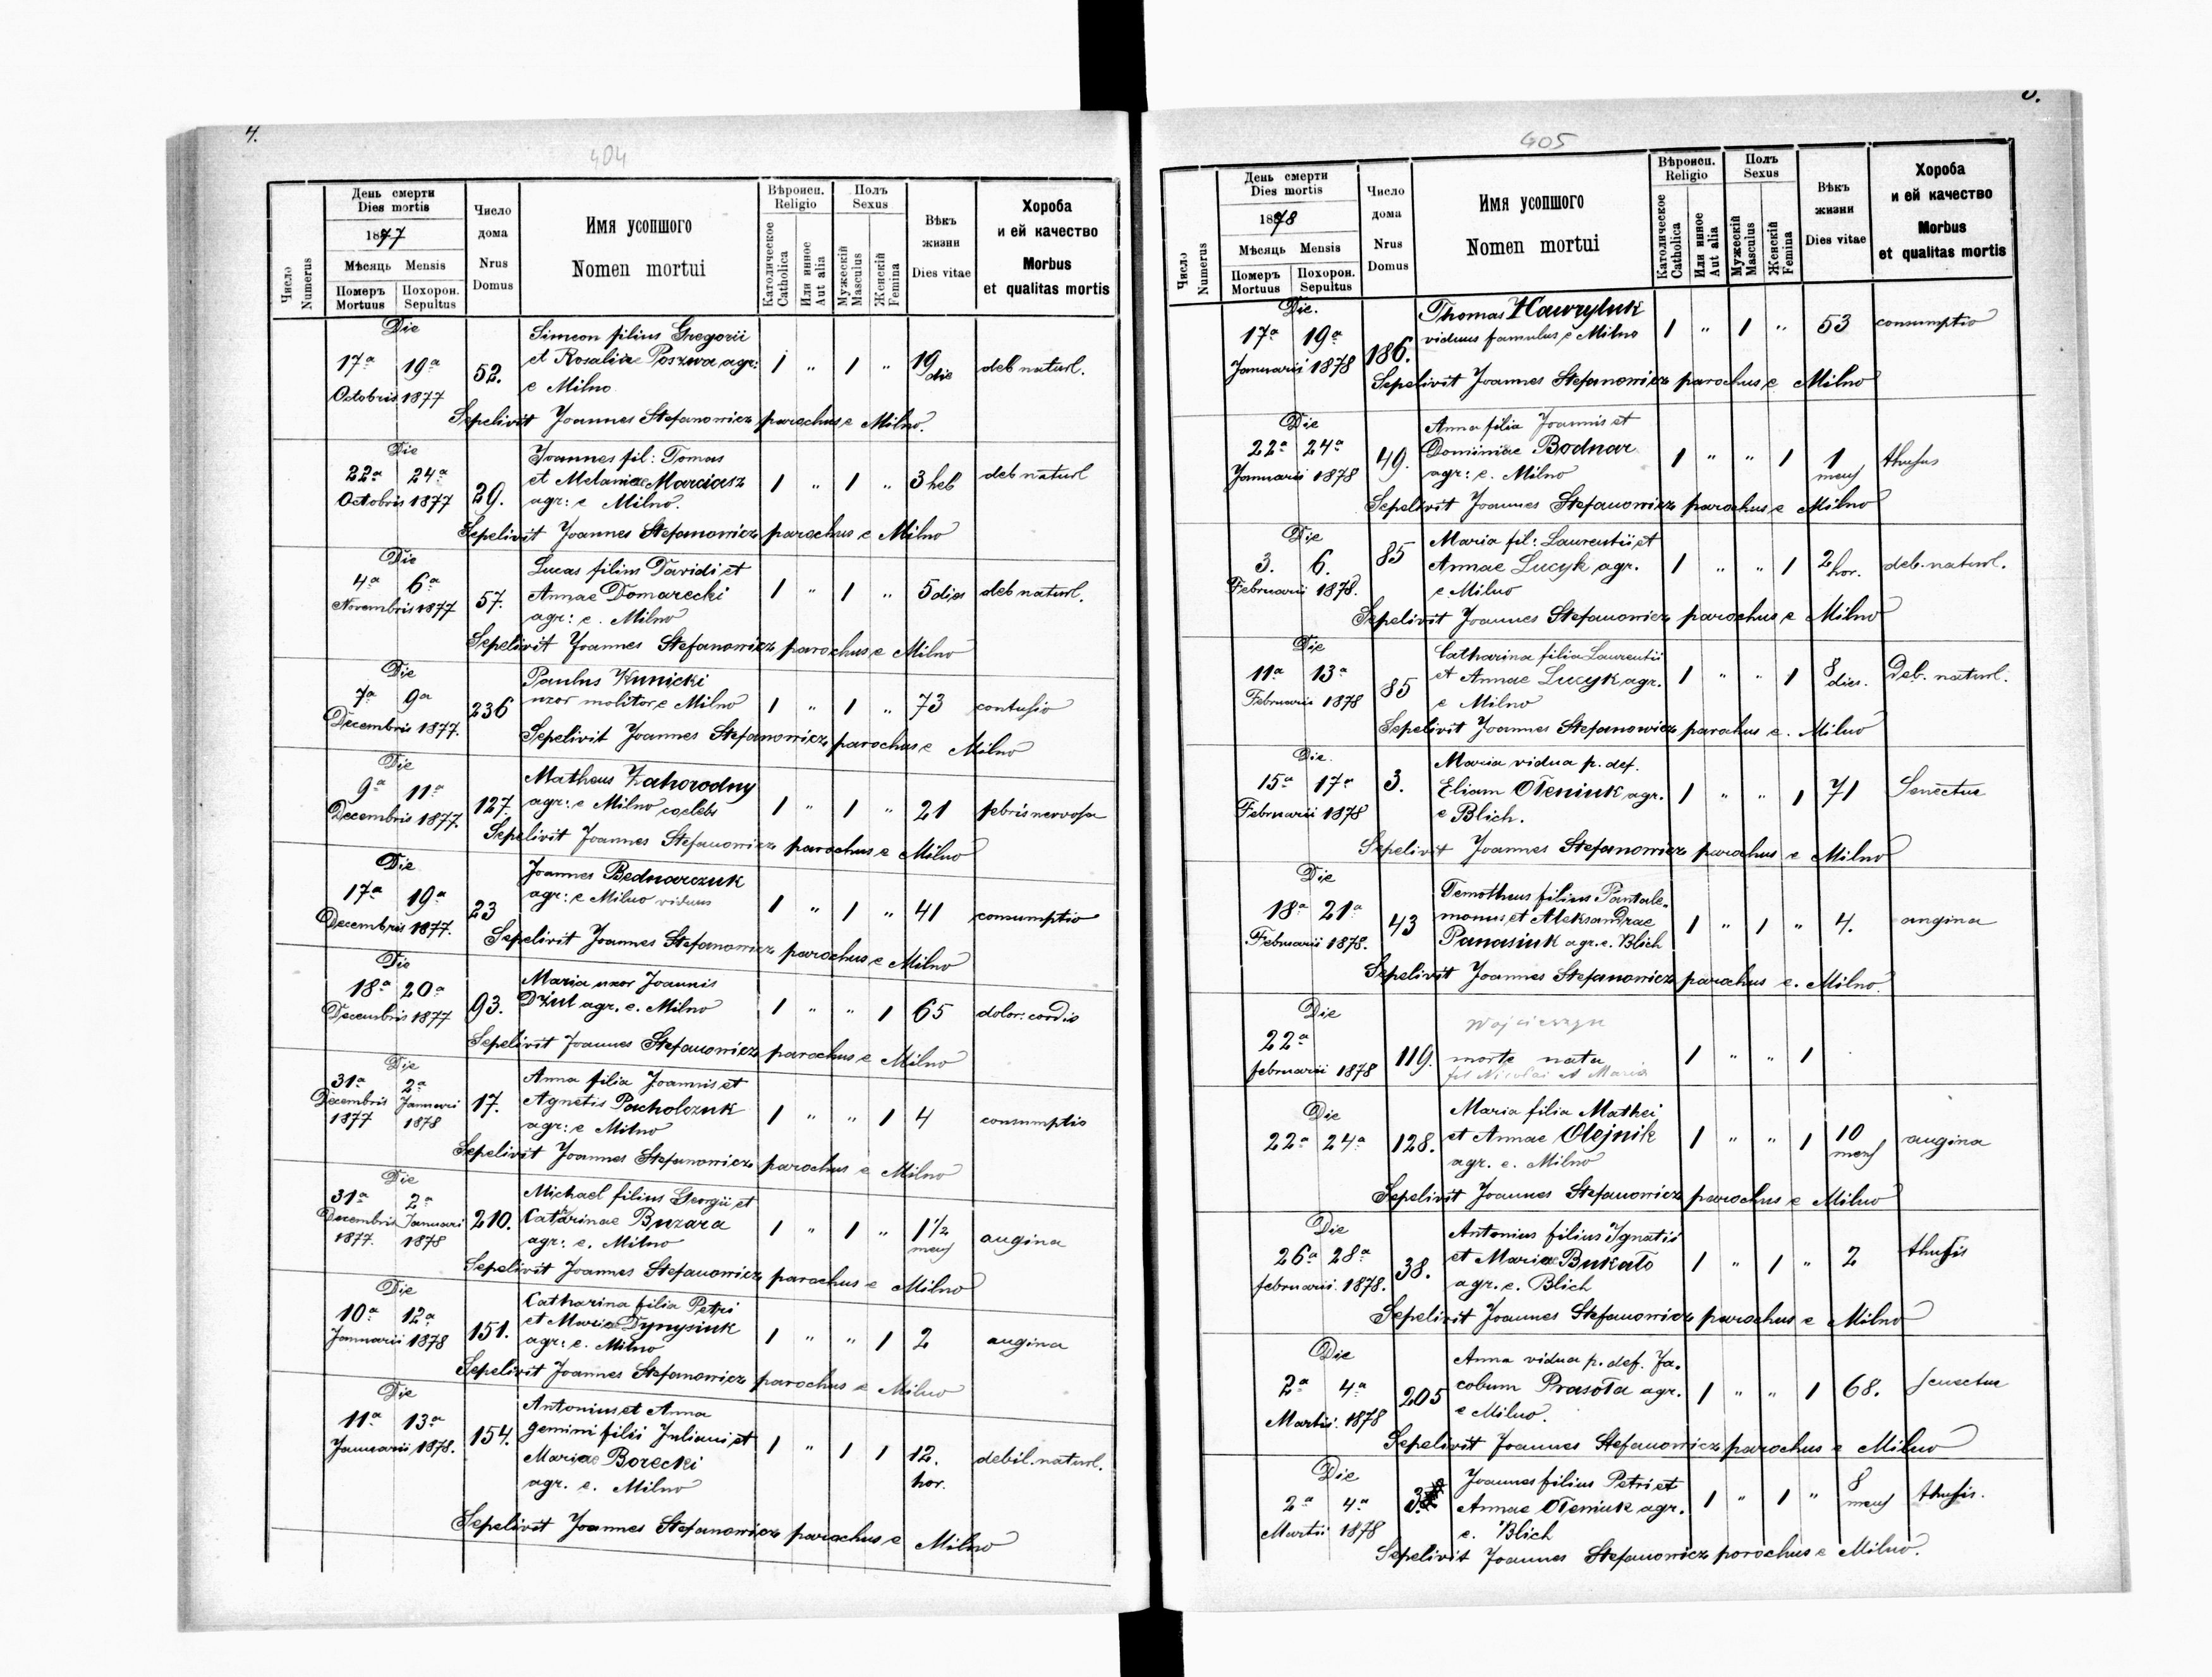 4.
404
Число
Numerus
День смерти
Dies mortis
1877
Мѣсяць Mensis
Померъ
Mortuus
Похорон.
Sepultus
Число
дома
Nrus
Domus
Имя усопшого
Nomen mortui
Вѣроисп.
Religio
Католическое
Catholica
Или инное
Aut alia
Полъ
Sexus
Мужескій
Masculus
Женскій
Femina
Вѣкъ
жизни
Dies vitae
Хороба
и ей качество
Morbus
et qualitas mortis
Die
Simeon filius Gregorii
17a 19a 52. et Rosaliae Poszwa agr: 1 " 1 " 19 die deb naturl.
Octobris 1877 e Milno
Sepelivit Joannes Stefanowicz parochus e Milno.
Die
Joannes fil: Tomas
22a 24a 29. et Melaniae Marciasz 1 " 1 " 3 heb deb naturl
Octobris 1877 agr: e Milno.
Sepelivit Joannes Stefanowicz parochus e Milno
Die
Lucas filius Davidi et
4a 6a 57. Annae Domarecki 1 " 1 " 5 dies deb naturl.
Novembris 1877 agr: e. Milno
Sepelivit Joannes Stefanowicz parochus e Milno
Die
Paulus Kunicki
7a 9a 236 uxor molitor e Milno 1 " 1 " 73 contusio
Decembris 1877.
Sepelivit Joannes Stefanowicz parochus e Milno
Die
Matheus Zahorodny
9a 11a 127. agr: e Milno coelebs 1 " 1 " 21 febris nervosa
Decembris 1877.
Sepelivit Joannes Stefanowicz parochus e Milno
Die
Joannes Bednarczuk
17a 19a 23 agr: e Milno viduus 1 " 1 " 41 consumptio
Decembris 1877.
Sepelivit Joannes Stefanowicz parochus e Milno
Die
Maria uxor Joannis
18a 20a 93. Dziul agr. e. Milno 1 " " 1 65 dolor: cordis
Decembris 1877
Sepelivit Joannes Stefanowicz parochus e Milno
Die
Anna filia Joannis et
31a 2a 17. Agnetis Pacholczuk 1 " " 1 4 consumptio
Decembris Januari agr: e Milno
1877 1878
Sepelivit Joannes Stefanowicz parochus e Milno
Die
Michael filius Georgii et
31a 2a 210. Catarinae Buzara 1 " 1 " 1 1/2 mens angina
Decembris Januari agr: e. Milno
1877. 1878
Sepelivit Joannes Stefanowicz parochus e Milno
Die
Catharina filia Petri
10a 12a 151. et Maria Dynysiuk 1 " " 1 2 angina
Januarii 1878 agr: e. Milno
Sepelivit Joannes Stefanowicz parochus e Milno
Die
Antonius et Anna
11a 13a 154. gemini filii Juliani et 1 " 1 1 12. hor. debil. naturl.
Januarii 1878. Mariae Borecki
agr. e. Milno
Sepelivit Joannes Stefanowicz parochus e Milno
405
Число
Numerus
День смерти
Dies mortis
1878
Мѣсяць Mensis
Померъ
Mortuus
Похорон.
Sepultus
Число
дома
Nrus
Domus
Имя усопшого
Nomen mortui
Вѣроисп.
Religio
Католическое
Catholica
Или инное
Aut alia
Полъ
Sexus
Мужескій
Masculus
Женскій
Femina
Вѣкъ
жизни
Dies vitae
Хороба
и ей качество
Morbus
et qualitas mortis
Die.
Thomas Hawryluk
17a 19a 186. viduus famulus e Milno 1 " 1 " 53 consumptio
Januarii 1878
Sepelivit Joannes Stefanowicz parochus e Milno
Die
Anna filia Joannis et
22a 24a 49. Dominiae Bodnar 1 " " 1 1 mens thusus
Januarii 1878 agr: e. Milno
Sepelivit Joannes Stefanowicz parochus e Milno
Die
Maria fil: Laurentii et
3. 6. 85 Annae Lucyk agr. 1 " " 1 2 hor. deb. naturl.
Februarii 1878. e Milno
Sepelivit Joannes Stefanowicz parochus e Milno
Die
Catharina filia Laurentii
11a 13a 85 et Annae Lucyk agr. 1 " " 1 8 dies. Deb. naturl.
Februarii 1878 e Milno
Sepelivit Joannes Stefanowicz parochus e. Milno
Die.
Maria vidua p. def.
15a 17a 3. Eliam Oleniuk agr. 1 " " 1 71 Senectus
Februarii 1878 e Blich.
Sepelivit Joannes Stefanowicz parochus e Milno
Die
Temotheus filius Pantale-
18a 21a 43 monus et Aleksandrae 1 " 1 " 4. angina
Februarii 1878. Panasiuk agr. e. Blich
Sepelivit Joannes Stefanowicz parochus e. Milno.
Die
Wojcieszyn
22a 119. morte nata 1 " " 1
februarii 1878 fil Nicolai et Maria
Die
Maria filia Mathei
22a 24a 128. et Annae Olejnik 1 " " 1 10 mens angina
agr. e. Milno
Sepelivit Joannes Stefanowicz parochus e Milno
Die
Antonius filius Ignatii
26a 28a 38. et Mariae Bukato 1 " 1 " 2 thusis
februarii. 1878. agr. e. Blich
Sepelivit Joannes Stefanowicz parochus e Milno
Die
Anna vidua p. def. Ja-
2a 4a 205 cobum Prasoła agr. 1 " " 1 68. senectus
Martii. 1878 e Milno.
Sepelivit Joannes Stefanowicz parochus e Milno
Die
Joannes filius Petri et
2a 4a 3 Annae Oleniuk agr. 1 " 1 " 8 mens thusis.
Martii 1878 e. Blich
Sepelivit Joannes Stefanowicz parochus e Milno.